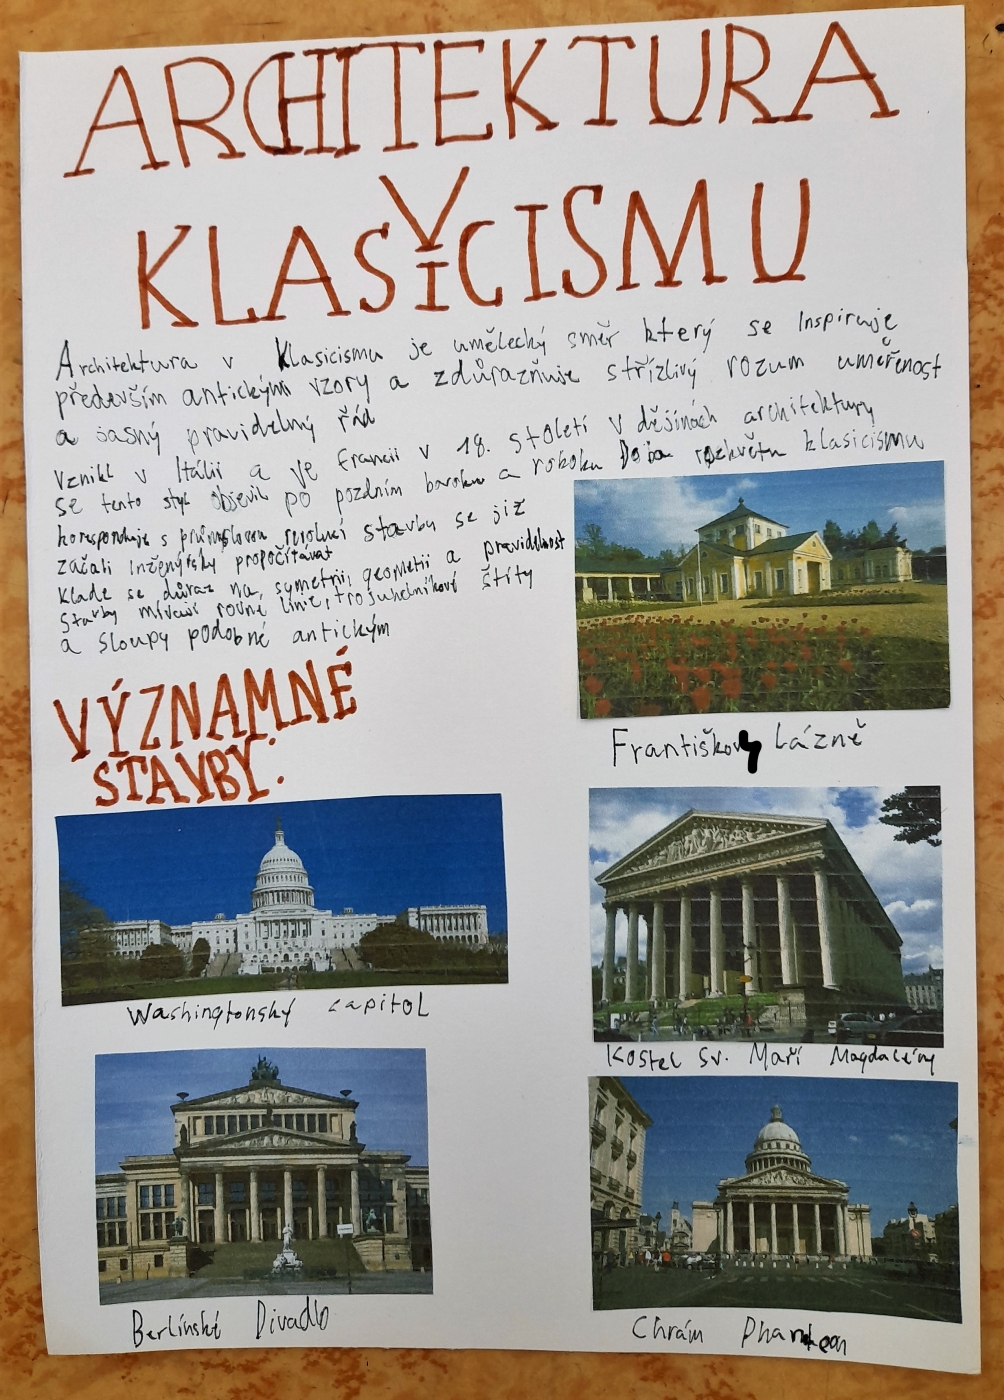 ARCHITEKTURA
KLASVICISMU
Architektura v Klasicismu je umělecký směr který se Inspiruje
především antickými vzory a zdůrazňuje střízlivý rozum uměřenost
a jasný pravidelný řád
Vznikl v Itálii a ve Francii v 18. století v dějinách architektury
se tento styl objevil po pozdním baroku a rokoku Doba rozkvětu klasicismu
koresponduje s průmyslovou revolucí stavby se již
začali inženýrsky propočítávat
klade se důraz na, symetrii, geometii a pravidelnost
Stavby mívají rovné linie, trojuhelníkové štíty
a sloupy podobné antickým
VÝZNAMNÉ
STAVBY:
Františkovy Lázně
Washingtonský capitol
Kostel sv. Maří Magdalény
Berlínské Divadlo
Chrám